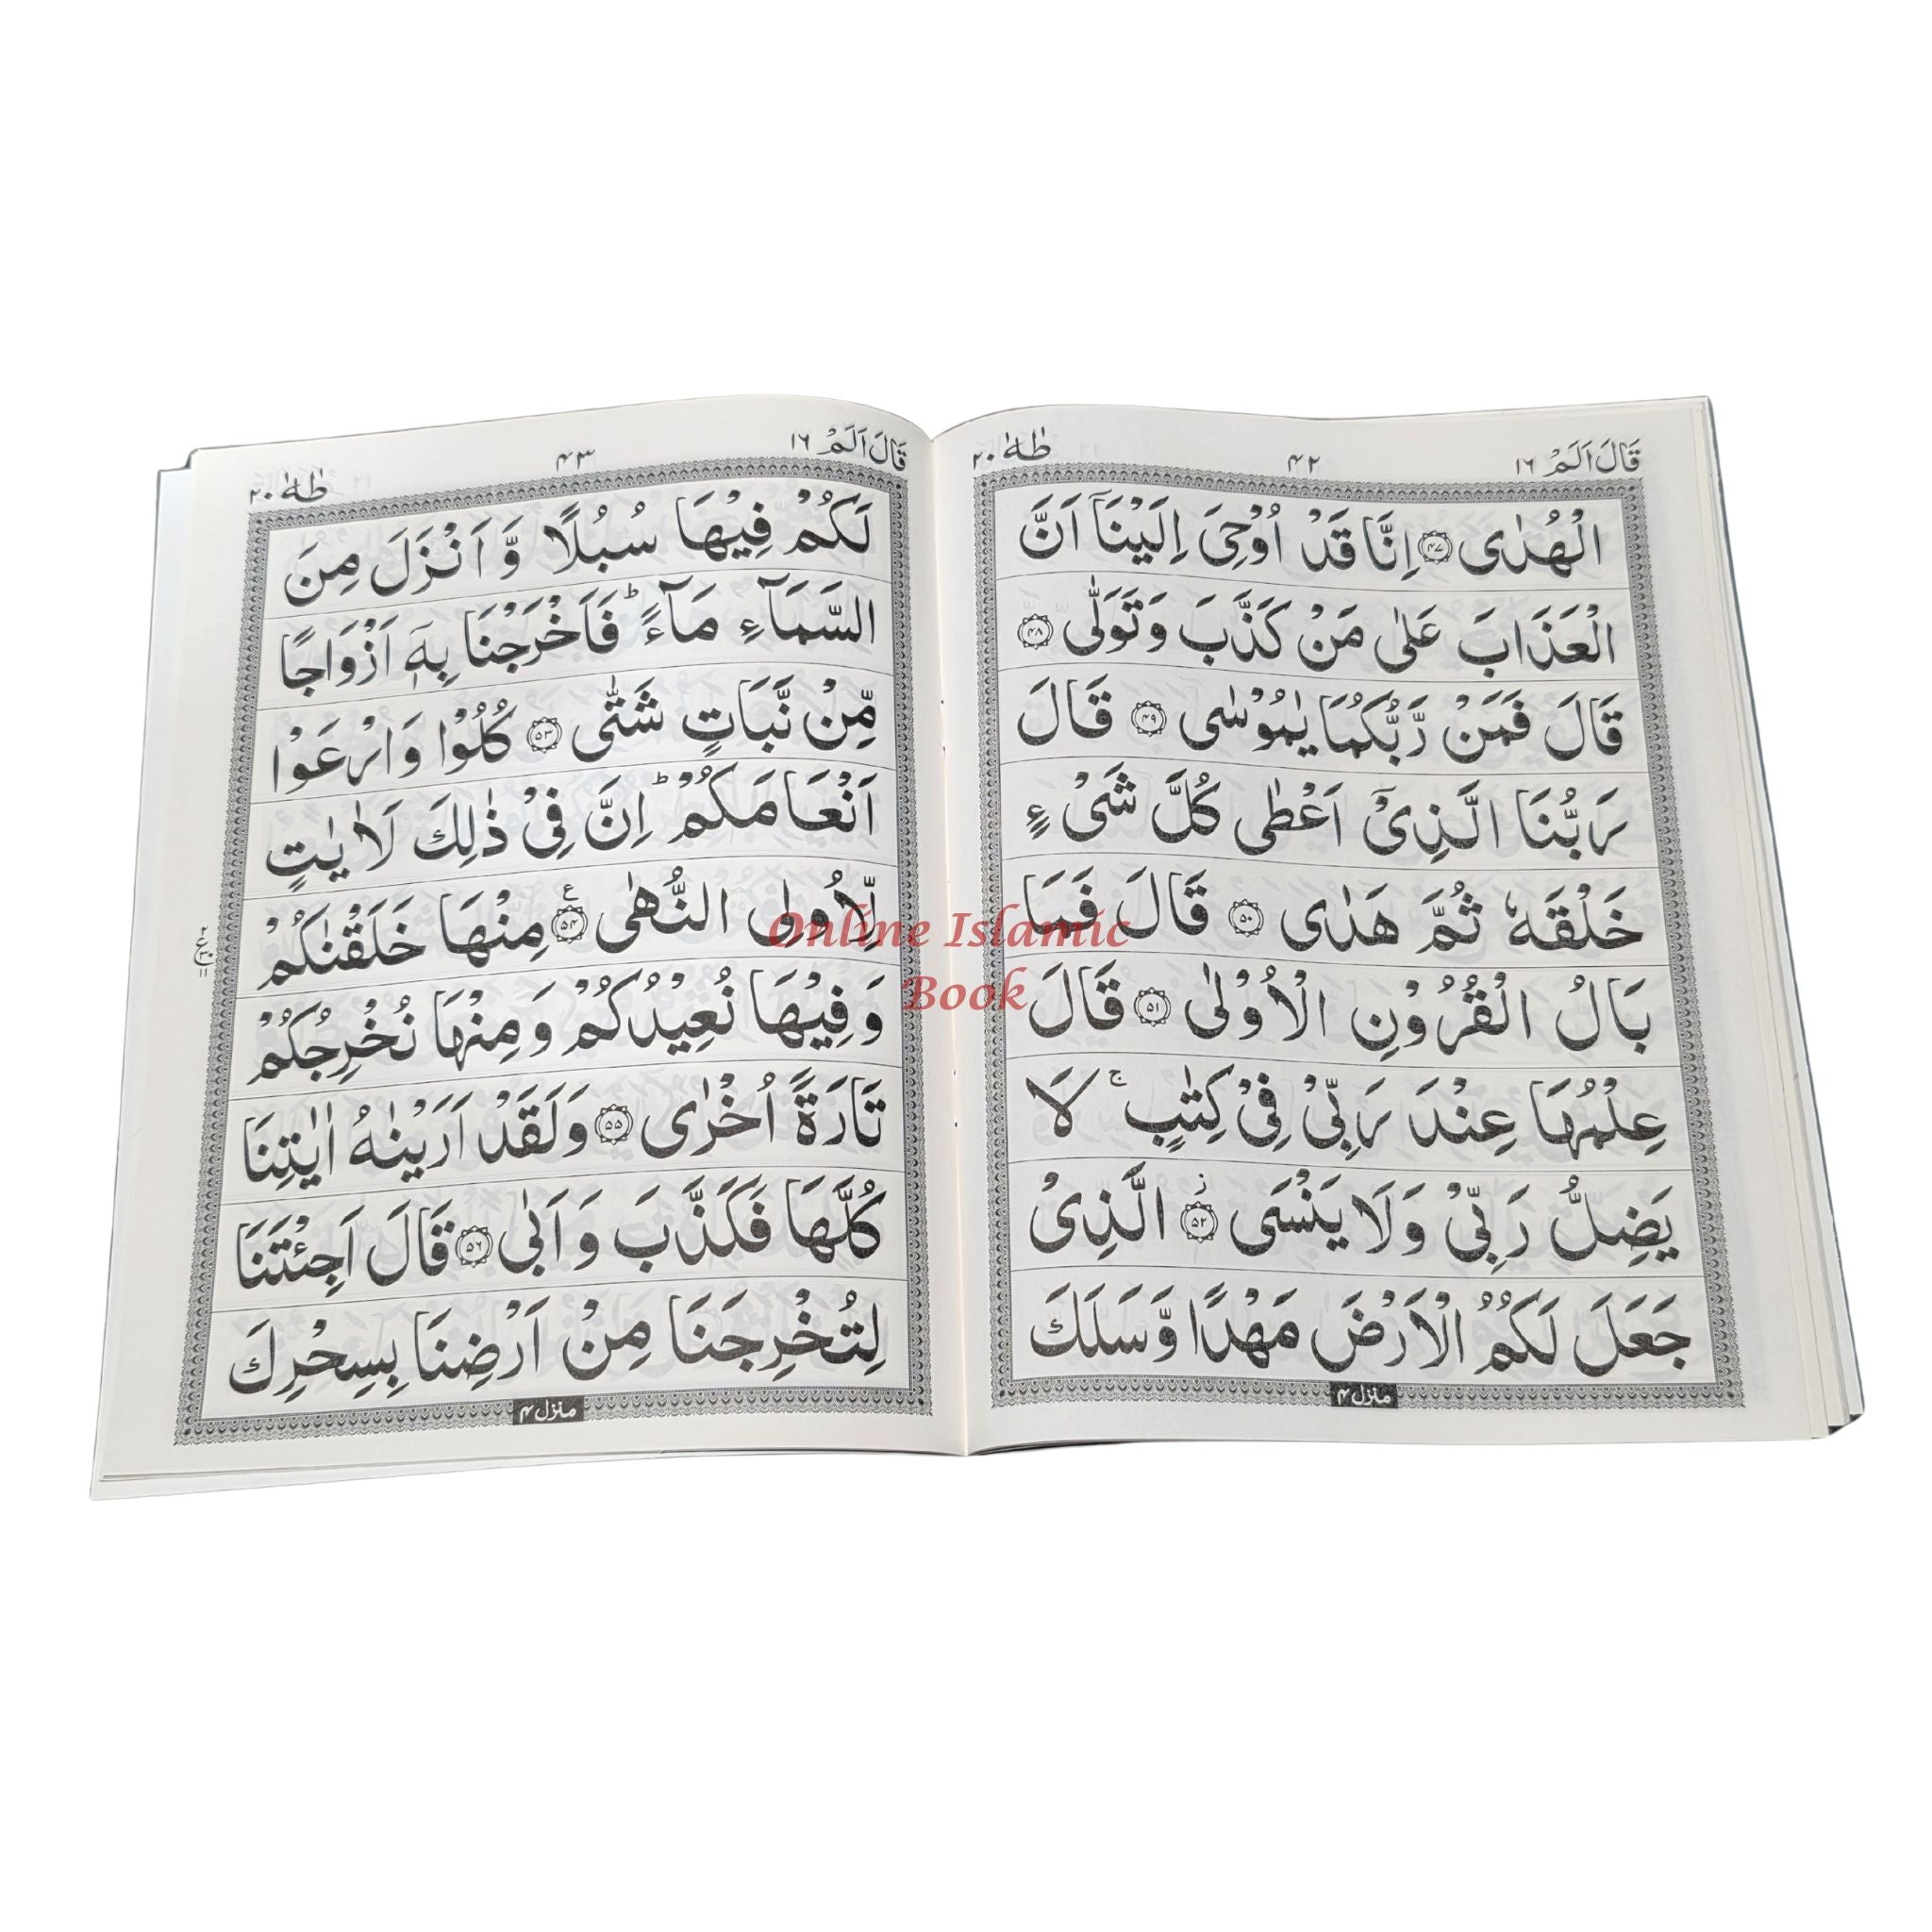 قَالَ اَلَمْ ١٦
۴۲
طٰهٰ ٢٠
الْهُدٰى ۝۴۷ اِنَّا قَدْ اُوْحِىَ اِلَيْنَاۤ اَنَّ
الْعَذَابَ عَلٰى مَنْ كَذَّبَ وَتَوَلّٰى ۝۴۸
قَالَ فَمَنْ رَّبُّكُمَا يٰمُوْسٰى ۝۴۹ قَالَ
رَبُّنَا الَّذِىْۤ اَعْطٰى كُلَّ شَىْءٍ
خَلْقَهٗ ثُمَّ هَدٰى ۝۵۰ قَالَ فَمَا
بَالُ الْقُرُوْنِ الْاُوْلٰى ۝۵۱ قَالَ
عِلْمُهَا عِنْدَ رَبِّىْ فِىْ كِتٰبٍ ۚ لَا
يَضِلُّ رَبِّىْ وَلَا يَنْسَى ۝۵۲ ز الَّذِىْ
جَعَلَ لَكُمُ الْاَرْضَ مَهْدًا وَّسَلَكَ
منزل ۴
قَالَ اَلَمْ ١٦
۴۳
طٰهٰ ٢٠
لَكُمْ فِيْهَا سُبُلًا وَّاَنْزَلَ مِنَ
السَّمَآءِ مَآءً ؕ فَاَخْرَجْنَا بِهٖۤ اَزْوَاجًا
مِّنْ نَّبَاتٍ شَتّٰى ۝۵۳ كُلُوْا وَارْعَوْا
اَنْعَامَكُمْ ؕ اِنَّ فِىْ ذٰلِكَ لَاٰيٰتٍ
لِّاُولِى النُّهٰى ۝۵۴ ع مِنْهَا خَلَقْنٰكُمْ
وَفِيْهَا نُعِيْدُكُمْ وَمِنْهَا نُخْرِجُكُمْ
تَارَةً اُخْرٰى ۝۵۵ وَلَقَدْ اَرَيْنٰهُ اٰيٰتِنَا
كُلَّهَا فَكَذَّبَ وَاَبٰى ۝۵۶ قَالَ اَجِئْتَنَا
لِتُخْرِجَنَا مِنْ اَرْضِنَا بِسِحْرِكَ
منزل ۴
Online Islamic
Book